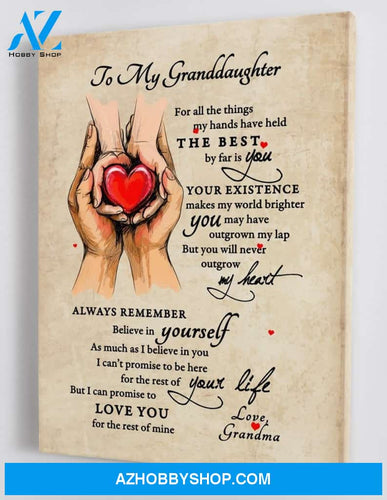 AZ
HOBBY SHOP
To My Granddaughter
For all the things
my hands have held
THE BEST
by far is you
YOUR EXISTENCE
makes my world brighter
you may have
outgrown my lap
But you will never
outgrow
my heart
ALWAYS REMEMBER
Believe in yourself
As much as I believe in you
I can't promise to be here
for the rest of your life
But I can promise to
LOVE YOU
for the rest of mine
Love,
Grandma
AZHOBBYSHOP.COM